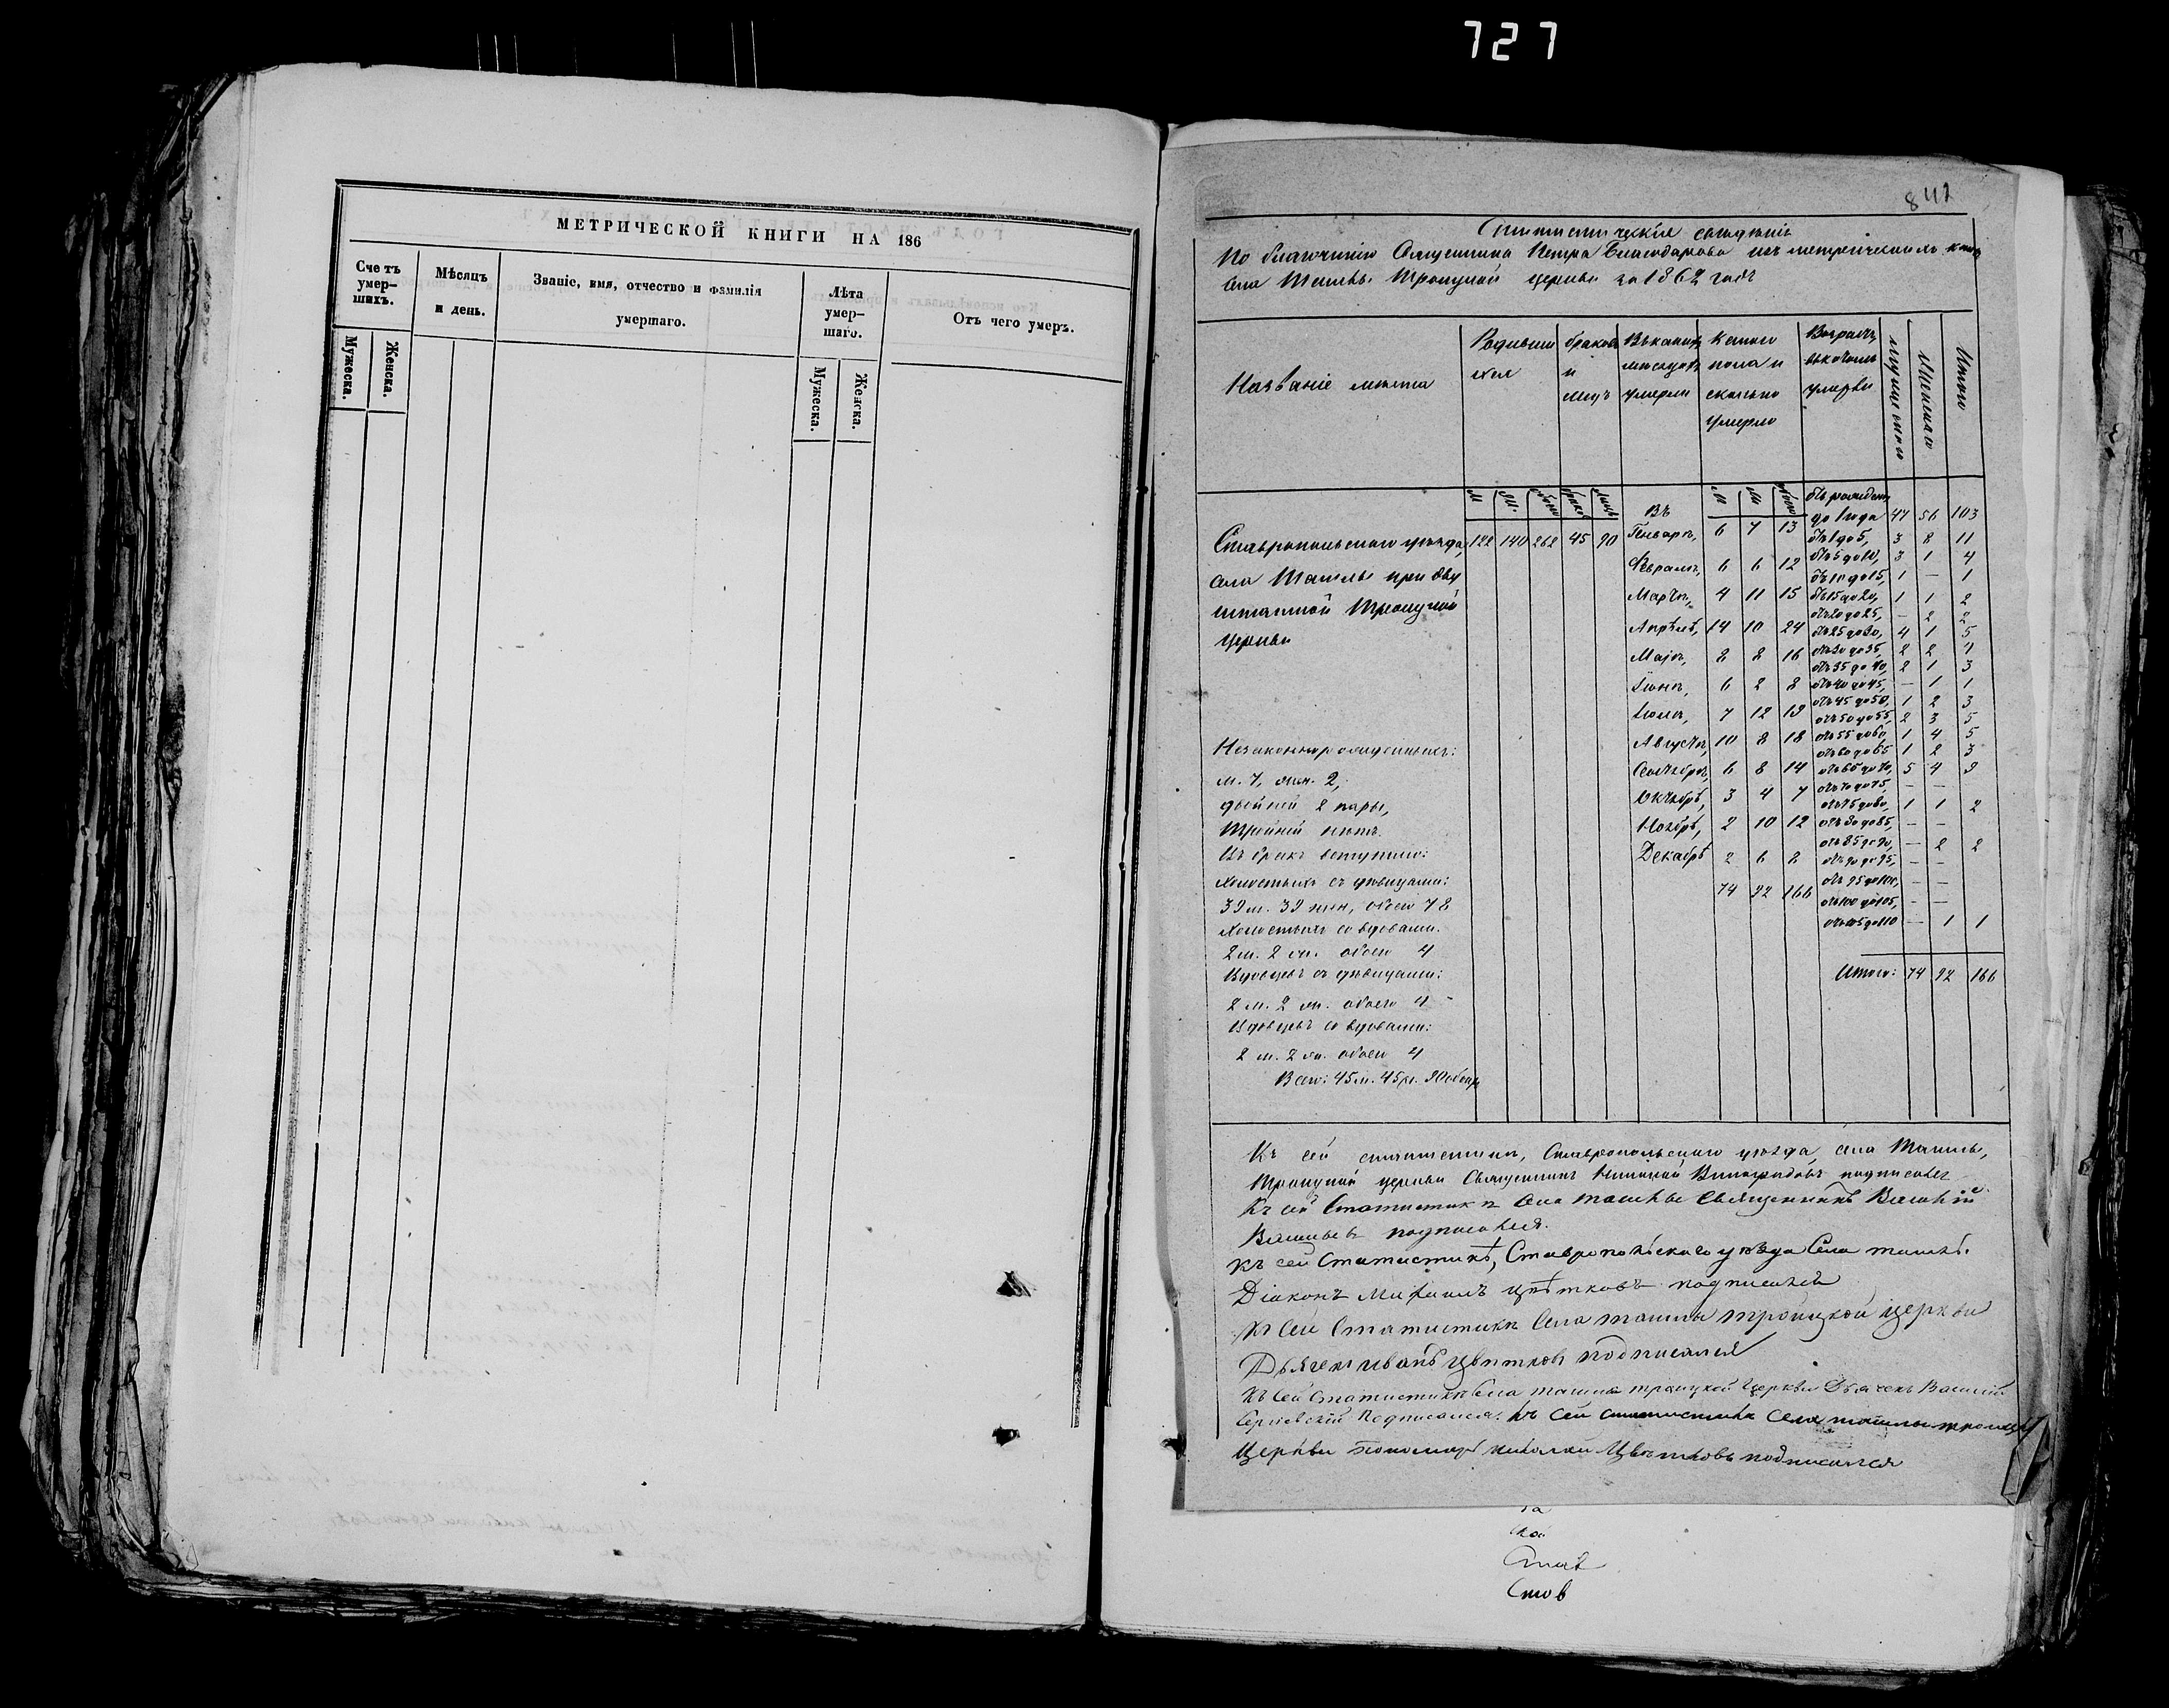 727
МЕТРИЧЕСКОЙ КНИГИ НА 186
Счетъ умер-шихъ.
Мѣсяцъ и день.
Званіе, имя, отчество и фамилія умершаго.
Лѣта умер-шаго.
Отъ чего умеръ.
Мужеска.
Женска.
Мужеска.
Женска.
842
Статистическія свѣденія
По благочинію Священника Петра Благодарова изъ метрическихъ книгъ
села Ташлы Троицкой церкви за 1862 годъ
Названіе мѣста
Родившихся
браковъ и лицъ
Въ какихъ мѣсяцахъ умерли
Какого пола и сколько умерло
Возрастъ, въ какомъ умерли
мужескаго
Женскаго
Итого
М Ж. обоего браковъ лицъ
Въ
М Ж обоего
Ставропольскаго уѣзда 122 140 262 45 90
села Ташлы при дву
штатной Троицкой
Церкви
Генварѣ, 6 7 13
Февралѣ, 6 6 12
Мартѣ, 4 11 15
Апрѣлѣ, 14 10 24
Маіѣ, 8 8 16
Іюнѣ, 6 2 8
Іюлѣ, 7 12 19
Августѣ, 10 8 18
Сентябрѣ, 6 8 14
Октябрѣ, 3 4 7
Ноябрѣ, 2 10 12
Декабрѣ 2 6 8
74 92 166
Отъ рожденія
до 1 года 47 56 103
отъ 1 до 5, 3 8 11
отъ 5 до 10, 3 1 4
отъ 10 до 15, 1 — 1
отъ 15 до 20, 1 1 2
отъ 20 до 25, — 2 2
отъ 25 до 30, 4 1 5
отъ 30 до 35, 2 2 4
отъ 35 до 40, 2 1 3
отъ 40 до 45, — 1 1
отъ 45 до 50, 1 2 3
отъ 50 до 55, 2 3 5
отъ 55 до 60, 1 4 5
отъ 60 до 65 1 2 3
отъ 65 до 70, 5 4 9
отъ 70 до 75, — —
отъ 75 до 80, 1 1 2
отъ 80 до 85, — —
отъ 85 до 90, — 2 2
отъ 90 до 95, — —
отъ 95 до 100, — —
отъ 100 до 105, — —
отъ 105 до 110 — 1 1
Итого: 74 92 166
Незаконнорожденныхъ:
м. 7, жен. 2,
двойней 2 пары,
Тройней нѣтъ.
Въ бракъ вступило:
холостыхъ съ дѣвицами:
39 м. 39 жен, обоего 78
Холостыхъ со вдовами.
2 м. 2 ж. обоего 4
Вдовцевъ съ дѣвицами:
2 м. 2 ж. обоего 4
Вдовцевъ со вдовами:
2 м. 2 ж. обоего 4
Всего: 45 м. 45 ж. 90 обоего
Къ сей статистикѣ, Ставропольскаго уѣзда, села Ташлы,
Троицкой церкви Священникъ Виноградовъ подписался
Къ сей Статистикѣ Села Ташлы Священникъ Василій
Васильевъ подписался.
Къ сей Статистикѣ, Ставропольскаго уѣзда Села Ташлы.
Діаконъ Михаилъ Цвѣтковъ подписался
Къ сей Статистикѣ Села Ташлы Троицкой церкви
Дьячекъ Иванъ Цвѣтковъ подписался
Къ сей Статистикѣ Села Ташлы Троицкой Церкви Дьячекъ Василій
Подписался. Къ сей статистикѣ Села Ташлы Троицкой
Церкви пономарь Николай Цвѣтковъ подписался
та
Став
Стов